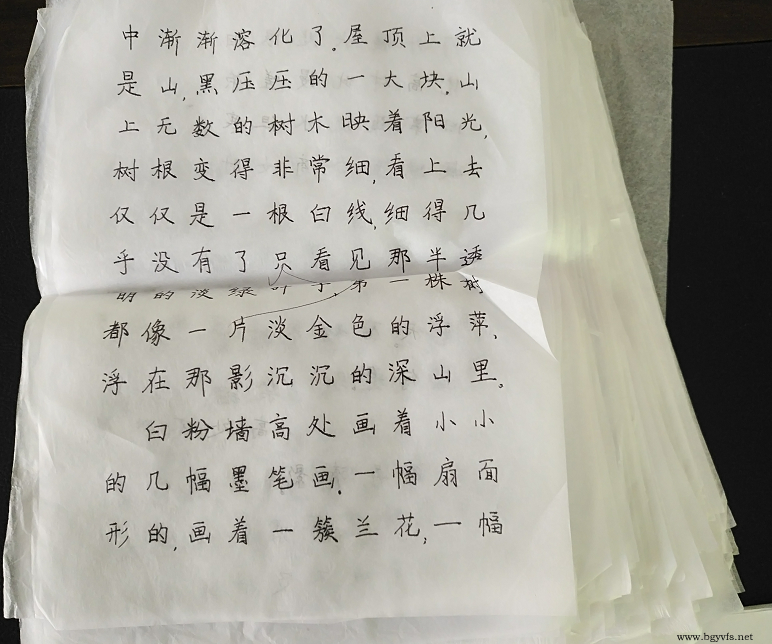 中渐渐溶化了。屋顶上就
是山,黑压压的一大块,山
上无数的树木映着阳光,
树根变得非常细,看上去
仅仅是一根白线,细得几
乎没有了只看见那半透
明的淡绿叶子,第一株树
都像一片淡金色的浮萍,
浮在那影沉沉的深山里。
白粉墙高处画着小小
的几幅墨笔画。一幅扇面
形的,画着一簇兰花,一幅
www.bgyvfs.net